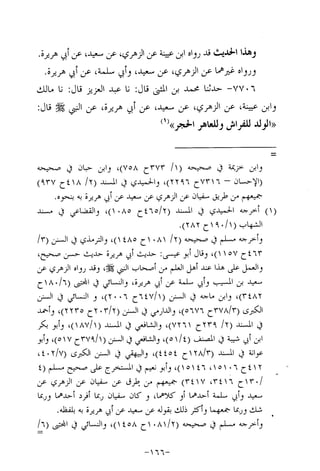 وهذا الحديث قد رواه ابن عيينة عن الزهري، عن سعيد، عن أبي هريرة.
ورواه غيرهما عن الزهري، عن سعيد، وأبي سلمة، عن أبي هريرة.
٧٧٠٦- حدثنا محمد بن المثنى قال: نا عبد العزيز قال: نا مالك
وابن عيينة، عن الزهري، عن سعيد، عن أبي هريرة، عن النبي ﷺ قال:
«الولد للفراش وللعاهر الحجر»(١)
=
وابن خزيمة في صحيحه (١/ ٣٧٣ ح ٧٥٨)، وابن حبان في صحيحه
(الإحسان – ٧٣١٦ ح ٢٢٩٦)، والحميدي في المسند (٢/ ٤١٨ ح ٩٣٧)
جميعهم من طريق سفيان عن الزهري عن سعيد عن أبي هريرة به بنحوه.
(١) أخرجه الحميدي في المسند (٢/ ٤٦٥ ح ١٠٨٥)، والقضاعي في مسند
الشهاب (١/ ١٩٠ ح ٢٨٢).
وأخرجه مسلم في صحيحه (٢/ ١٠٨١ ح ١٤٨٥)، والترمذي في السنن (٣/
٤٦٣ ح ١١٥٧)، وقال أبو عيسى: حديث أبي هريرة حديث حسن صحيح،
والعمل على هذا عند أهل العلم من أصحاب النبي ﷺ، وقد رواه الزهري عن
سعيد بن المسيب وأبي سلمة عن أبي هريرة، والنسائي في المجتبى (٦/ ١٨٠ ح
٣٤٨٢)، وابن ماجه في السنن (١/ ٦٤٧ ح ٢٠٠٦)، و النسائي في السنن
الكبرى (٣/ ٣٧٨ ح ٥٦٧٦)، والدارمي في السنن (٢/ ٢٠٣ ح ٢٢٣٥)، وأحمد
في المسند (٢/ ٢٣٩ ح ٧٢٦١)، والشافعي في المسند (١/ ١٨٧)، وأبو بكر
ابن أبي شيبة في المصنف (٤/ ٥١)، والشافعي في السنن (١/ ٣٧٩ ح ٥١٧)، وأبو
عوانة في المسند (٣/ ١٢٨ ح ٤٤٥٤)، والبيهقي في السنن الكبرى (٧/ ٤٠٢،
٤١٢ ح ١٥١٠٦، ١٥١٤٦)، وأبو نعيم في المستخرج على صحيح مسلم (٤
/ ١٣٠ ح ٣٤١٦، ٣٤١٧) جميعهم من طرق عن سفيان عن الزهري عن
سعيد وأبي سلمة أحدهما أو كلاهما، و كان سفيان ربما أفرد أحدهما وربما
شك وربما جمعهما وأكثر ذلك بقوله عن سعيد عن أبي هريرة به بلفظه.
وأخرجه مسلم في صحيحه (٢/ ١٠٨١ ح ١٤٥٨)، والنسائي في المجتبى (٦/
=
-١٦٦-